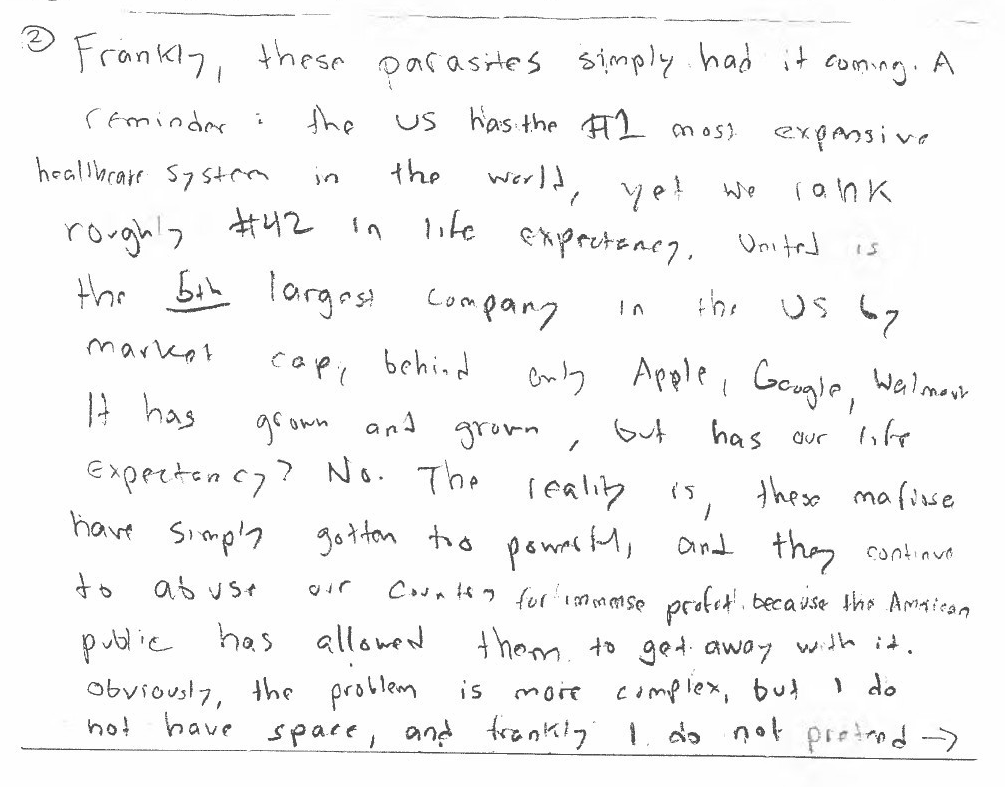 ② Frankly, these parasites simply had it coming. A
reminder : the US has the #1 most expensive
healthcare system in the world, yet we rank
roughly #42 in life expectancy. United is
the 5th largest company in the US by
market cap, behind only Apple, Google, Walmart
It has grown and grown, but has our life
Expectancy? No. The reality is, these
have simply gotten too powerful, and they continue
to abuse our country for immense profit because the American
public has allowed them to get away with it.
Obviously, the problem is more complex, but I do
not have space, and frankly I do not pretend →